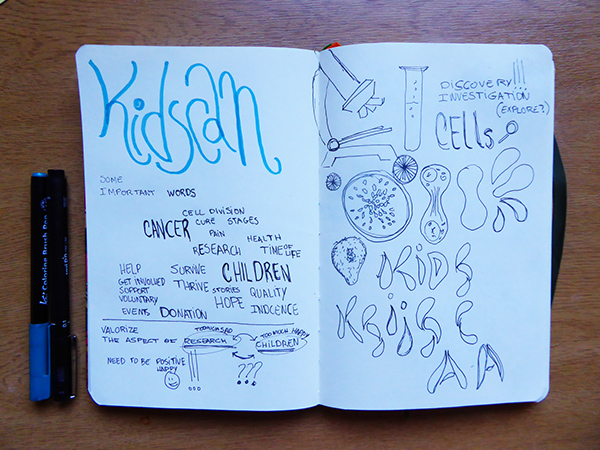 Kidscan
SOME
IMPORTANT WORDS
CELL DIVISION
CANCER CURE STAGES
PAIN
HEALTH
RESEARCH TIME OF LIFE
HELP SURVIVE CHILDREN
GET INVOLVED
SUPPORT THRIVE STORIES QUALITY
VOLUNTARY HOPE INOCENCE
EVENTS DONATION
VALORIZE TOO MUCH SAD TOO MUCH HAPPY
THE ASPECT OF RESEARCH CHILDREN
NEED TO BE POSITIVE
HAPPY
!!! ???
DISCOVERY!!!
INVESTIGATION
(EXPLORE?)
CELLS
KIDS
A A
Coloring Brush Pen